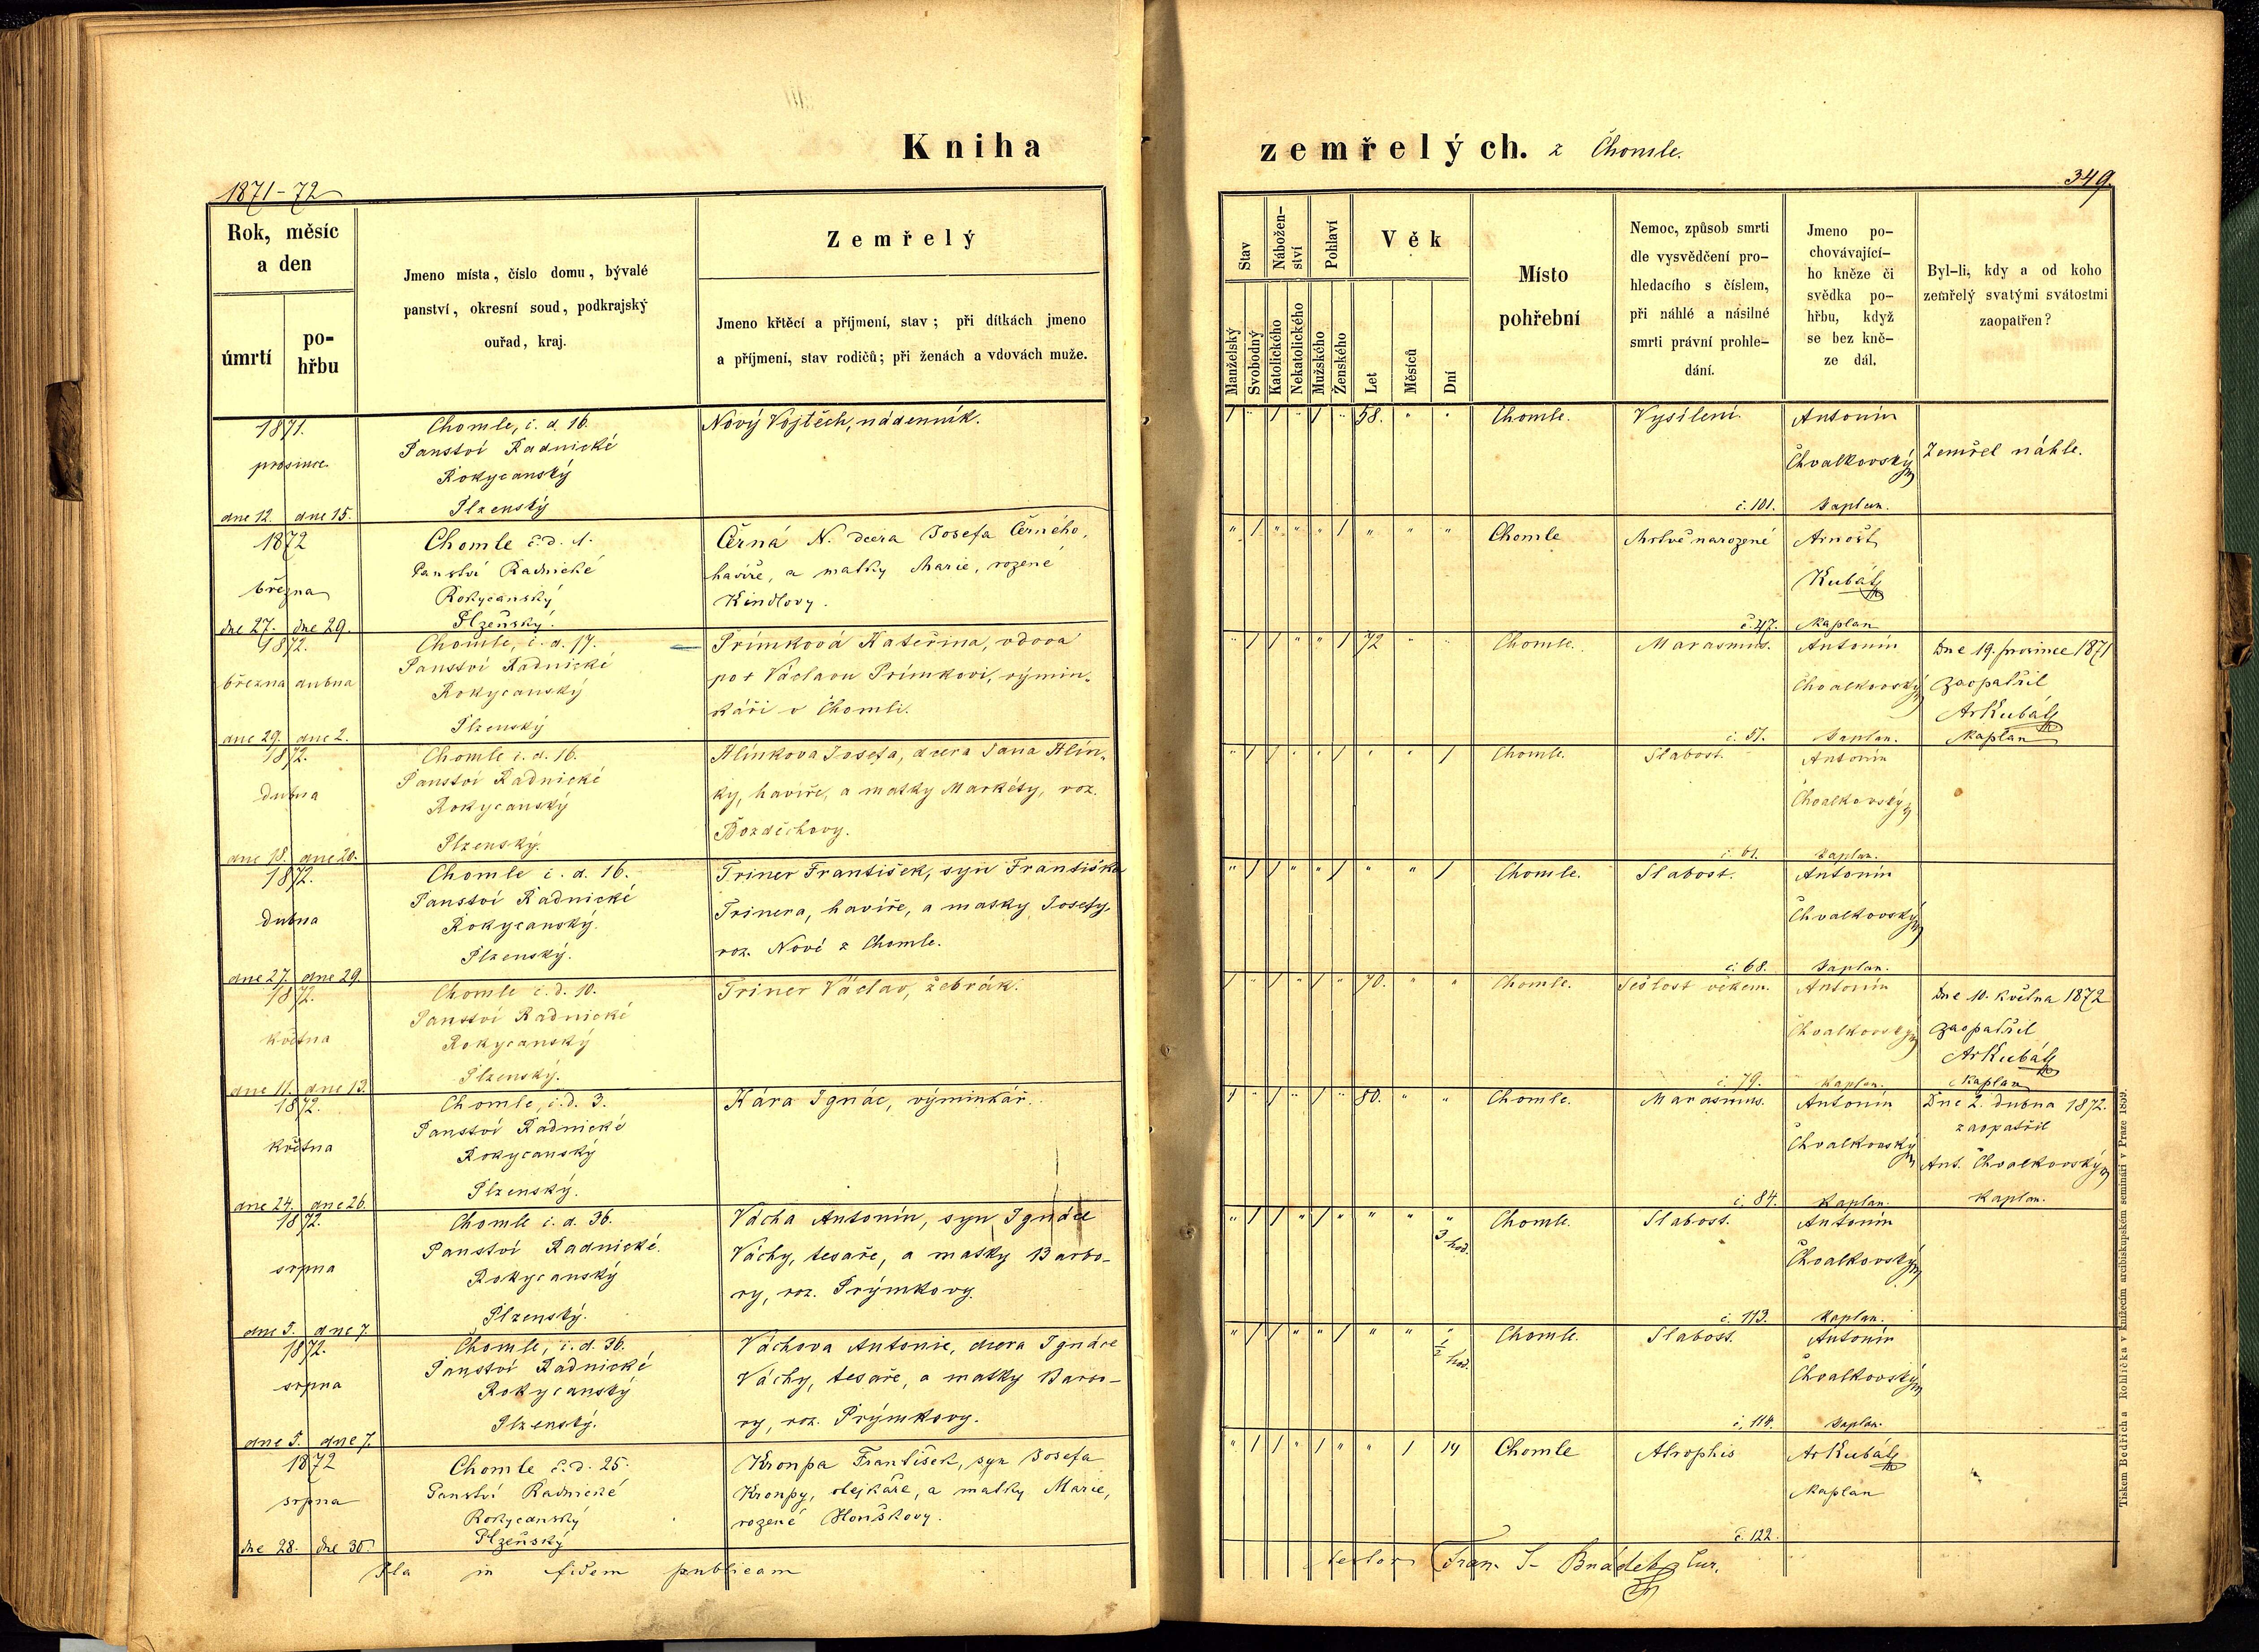 Kniha
zemřelých. z Chomle.
1871-72
349.
Rok, měsíc
a den
úmrtí
po-
hřbu
Jmeno místa, číslo domu, bývalé
panství, okresní soud, podkrajský
ouřad, kraj.
Zemřelý
Jmeno křtěcí a příjmení, stav; při dítkách jmeno
a příjmení, stav rodičů; při ženách a vdovách muže.
Stav
Manželský
Svobodný
Nábožen-
ství
Katolického
Nekatolického
Pohlaví
Mužského
Ženského
Věk
Let
Měsíců
Dní
Místo
pohřební
Nemoc, způsob smrti
dle vysvědčení pro-
hledacího s číslem,
při náhlé a násilné
smrti právní prohle-
dání.
Jmeno po-
chovávající-
ho kněze či
svědka po-
hřbu, když
se bez kně-
ze dál.
Byl-li, kdy a od koho
zemřelý svatými svátostmi
zaopatřen?
1871.
prosince
dne 12. dne 15.
Chomle, č. d. 16.
Panství Radnické
Rokycanský
Plzenský
Nový Vojtěch, nádenník.
1 " 1 " 1 " 58. " "
Chomle.
Vysílení.
č. 101.
Antonín
Chvalkovský
Kaplan.
Zemřel náhle.
1872
března
dne 27. dne 29.
Chomle č. d. 1.
Panství Radnické
Rokycanský
Plzeňský.
Černá N. dcera Josefa Černého,
havíře, a matky Marie, rozené
Kindlovy.
" 1 1 " " 1 " " "
Chomle
Mrtvě narozené
č. 47.
Arnošt
Kubát
Kaplan
1872.
března dubna
dne 29. dne 2.
Chomle, č. d. 17.
Panství Radnické
Rokycanský
Plzenský
Prímková Kateřina, vdova
po + Václavu Prímkovi, výmin-
káři v Chomli.
" 1 1 " " 1 72 " "
Chomle.
Marasmus.
č. 51.
Antonín
Chvalkovský
Kaplan.
Dne 19. prosince 1871
zaopatřil
ArKubát
Kaplan
1872.
dubna
dne 18. dne 20.
Chomle č. d. 16.
Panství Radnické
Rokycanský
Plzenský.
Hlinkova Josefa, dcera Jana Hlin-
ky, havíře, a matky Markéty, roz.
Bozděchovy.
" 1 1 " " 1 " " 1
Chomle.
Slabost.
č. 61.
Antonín
Chvalkovský
Kaplan.
1872.
dubna
dne 27. dne 29.
Chomle č. d. 16.
Panství Radnické
Rokycanský.
Plzenský.
Triner František, syn Františka
Trinera, havíře, a matky Josefy,
roz. Nové z Chomle.
Chomle.
Slabost.
č. 68.
Antonín
Chvalkovský
Kaplan.
1872.
května
dne 11. dne 13.
Chomle č. d. 10.
Panství Radnické
Rokycanský
Plzenský.
Triner Václav, žebrák.
1 " 1 " 1 " 70. " "
Chomle.
Sešlost věkem.
č. 79.
Antonín
Chvalkovský
Kaplan.
Dne 10. května 1872
zaopatřil
ArKubát
Kaplan
1872.
května
dne 24. dne 26.
Chomle, č. d. 3.
Panství Radnické
Rokycanský
Plzenský.
Kára Ignác, výminkář.
1 " 1 " 1 " 80. " "
Chomle.
Marasmus.
č. 84.
Antonín
Chvalkovský
Kaplan.
Dne 2. dubna 1872.
zaopatřil
Ant. Chvalkovský
Kaplan.
1872.
srpna
dne 5. dne 7.
Chomle č. d. 36.
Panství Radnické.
Rokycanský
Plzenský.
Vácha Antonín, syn Ignáce
Váchy, tesaře, a matky Barbo-
ry, roz. Prýmkovy.
" 1 1 " 1 " " " "
3 hod.
Chomle.
Slabost.
č. 113.
Antonín
Chvalkovský
Kaplan.
1872.
srpna
dne 5. dne 7.
Chomle, č. d. 36.
Panství Radnické
Rokycanský
Plzenský.
Váchova Antonie, dcera Ignáce
Váchy, tesaře, a matky Barbo-
ry, roz. Prýmkovy.
" 1 1 " " 1 " " "
1/2 hod.
Chomle.
Slabost.
č. 114.
Antonín
Chvalkovský
Kaplan.
1872
srpna
dne 28. dne 30.
Chomle č. d. 25.
Panství Radnické
Rokycanský
Plzeňský
Kronpa František, syn Josefa
Kronpy, olejkáře, a matky Marie,
rozené Houškovy.
" 1 1 " 1 " " 1 14
Chomle
Atrophis
č. 122.
ArKubát
Kaplan
Ita in fidem publicam
testor Fran. S. Bnádek, Cur.
Tiskem Bedřich a Rohlíčka v knížecím arcibiskupském semináři v Praze 1859.